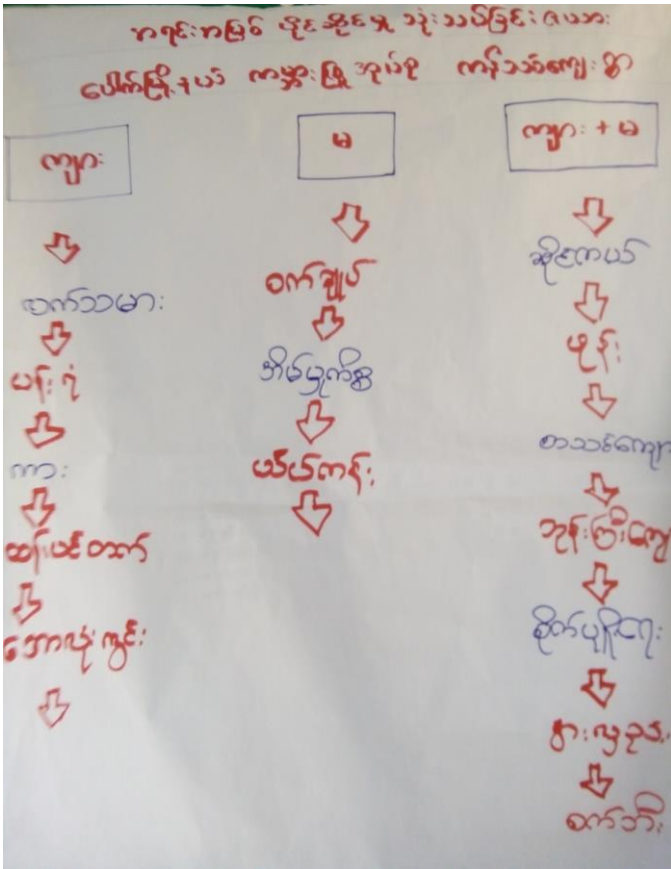 အရင်းအမြစ် ပိုင်ဆိုင်မှု သုံးသပ်ခြင်း ဇယား
ပေါက်မြို့နယ် ကမ္ဘားဖြူအုပ်စု ကန်သာကျေးရွာ
ကျား
မ
ကျား + မ
စက်သမား
ပန်းရံ
ကား
ထန်းပင်တက်
ဘောလုံးကွင်း
စက်ချုပ်
အိမ်မှုကိစ္စ
ယက်ကန်း
ဆိုင်ကယ်
ဖုန်း
စာသင်ကျော
ဘုန်းကြီးကျေ
စိုက်ပျိုးရေး
နွားလှည်း
စက်ဘီး